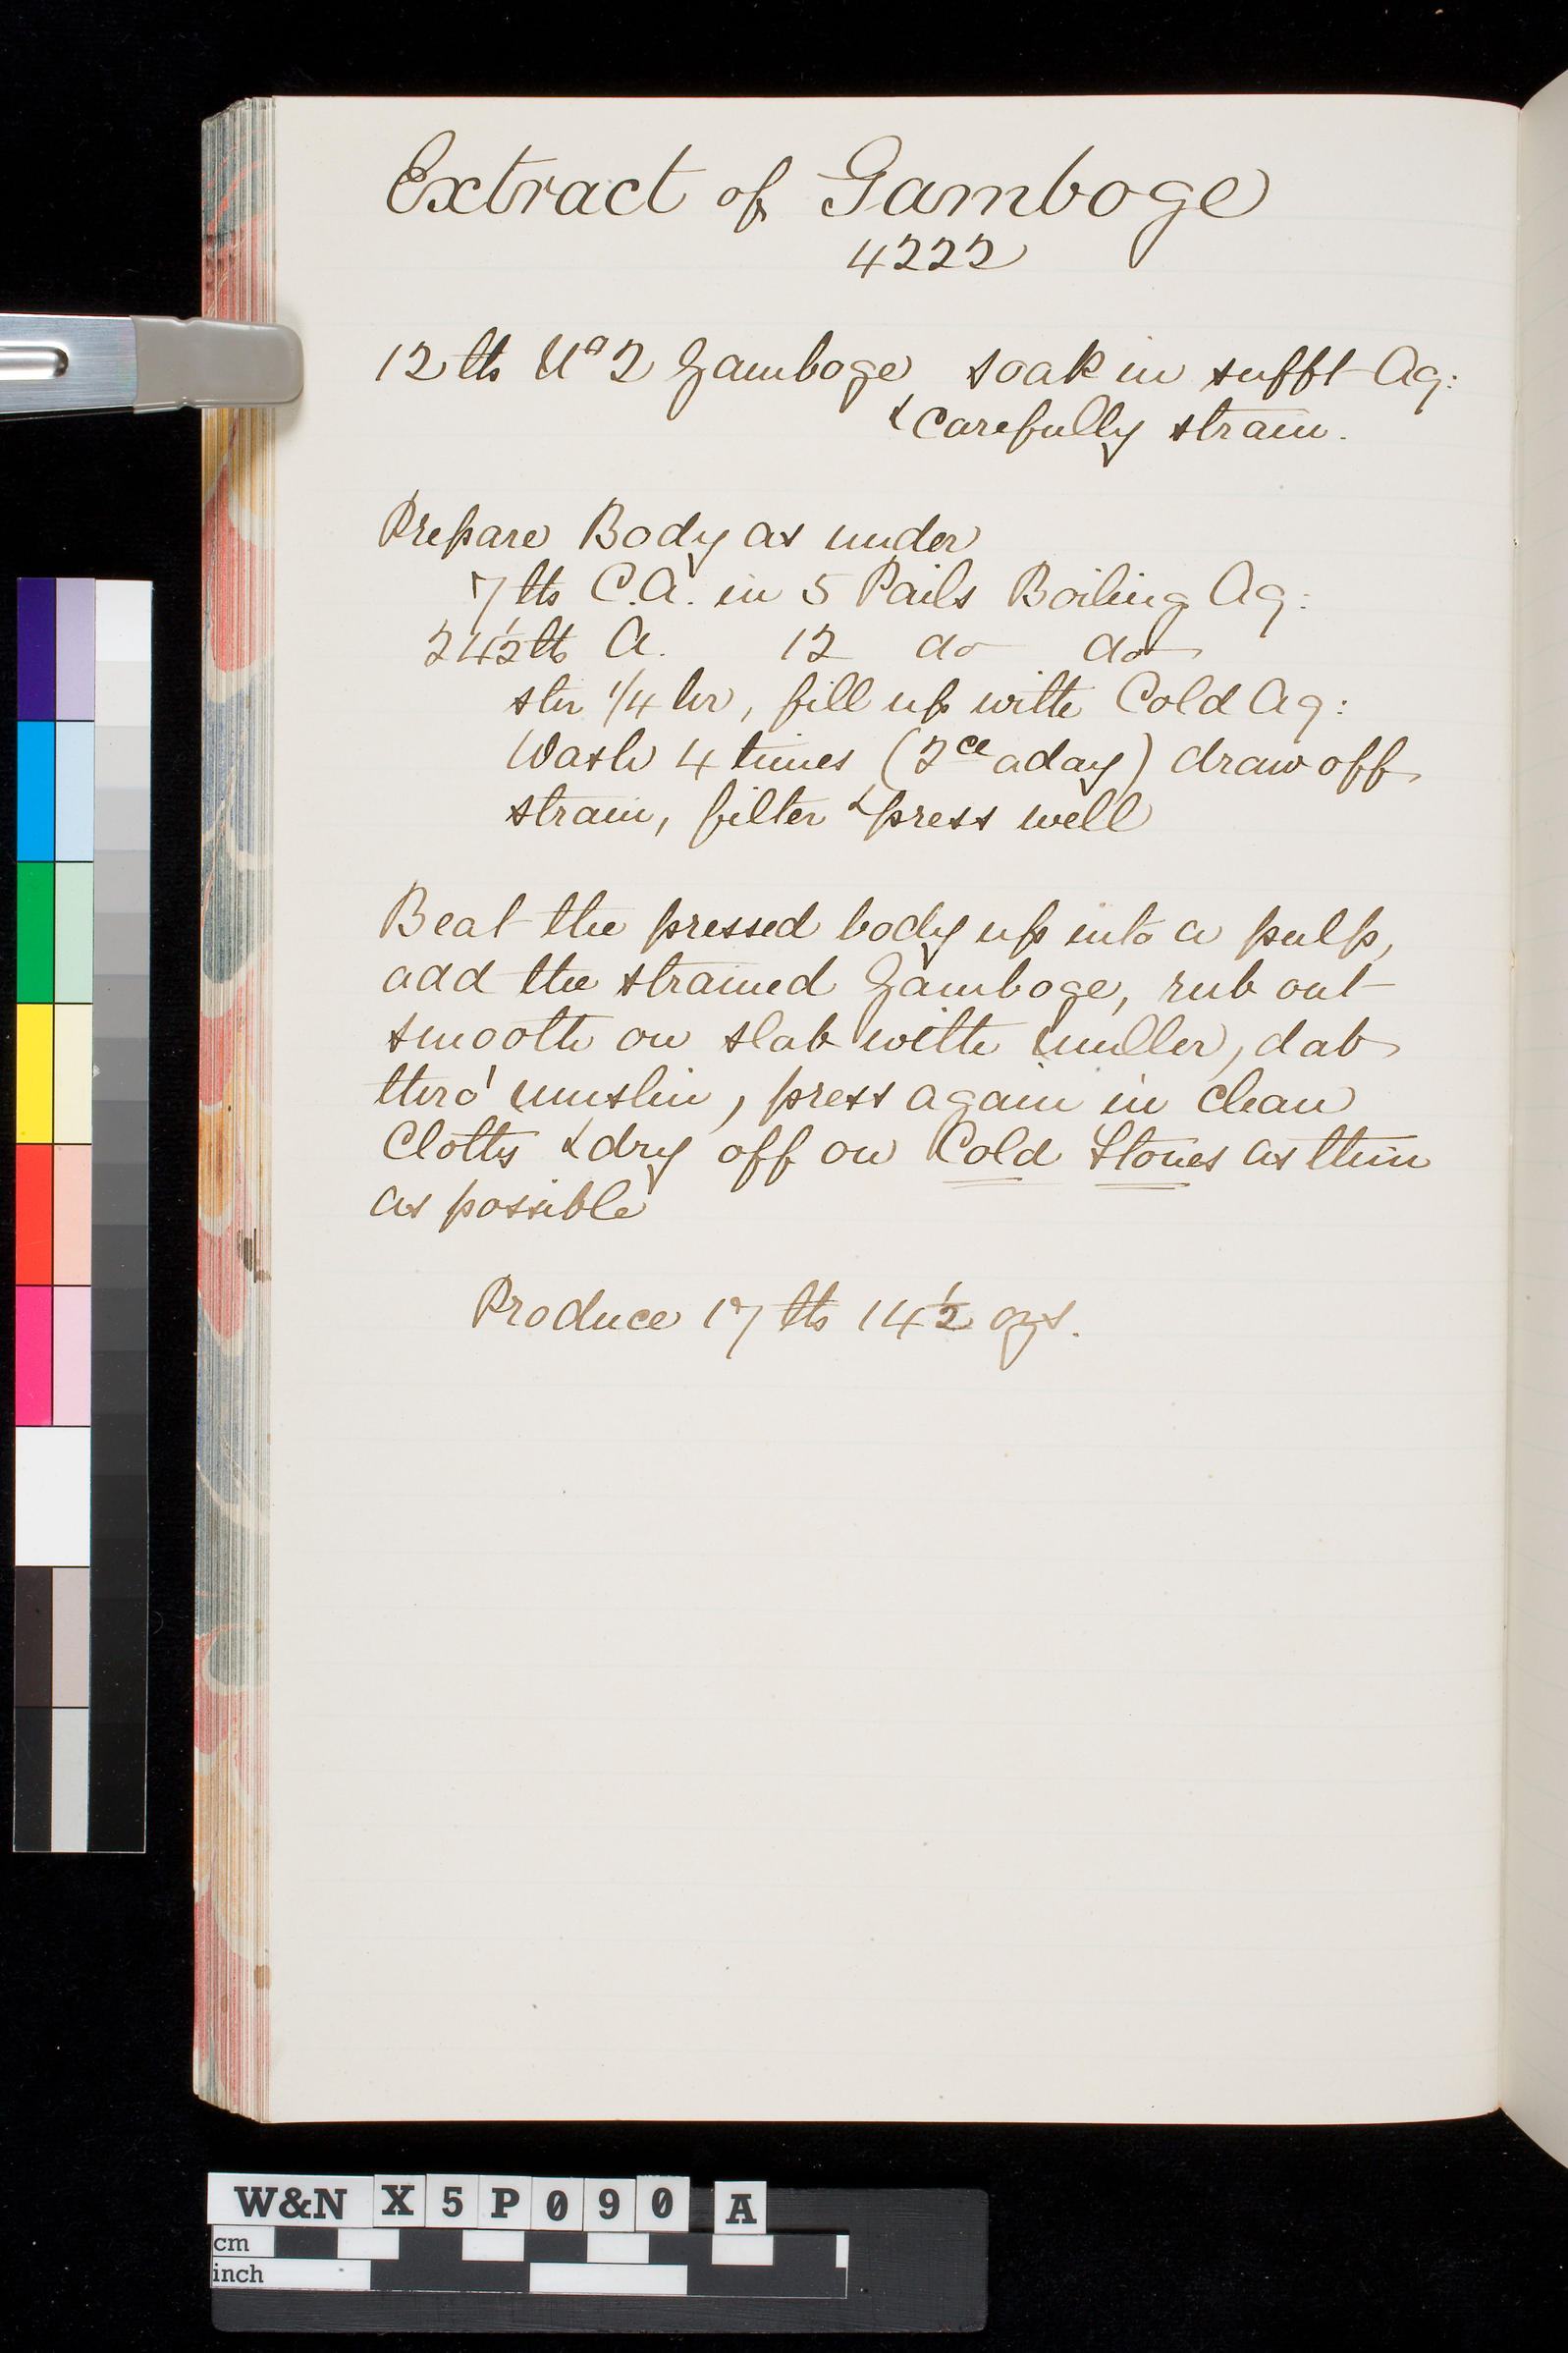 Extract of Gamboge
4222
12 lbs No 2 Gamboge soak in sufft Aq:
& carefully strain.
Prepare Body as under
7 lbs C.A. in 5 Pails Boiling Aq:
24½ lb A. 12 do do
stir 1/4 hr, fill up with Cold Aq:
Wash 4 times (2ce a day) draw off
strain, filter & press well
Beat the pressed body up into a pulp,
add the strained Gamboge, rub out
smooth on slab with muller, dab
thro' muslin, press again in clean
Cloths & dry off on Cold Stones as thin
as possible
Produce 17 lbs 14½ ozs.
W&N X5P090 A
cm
inch